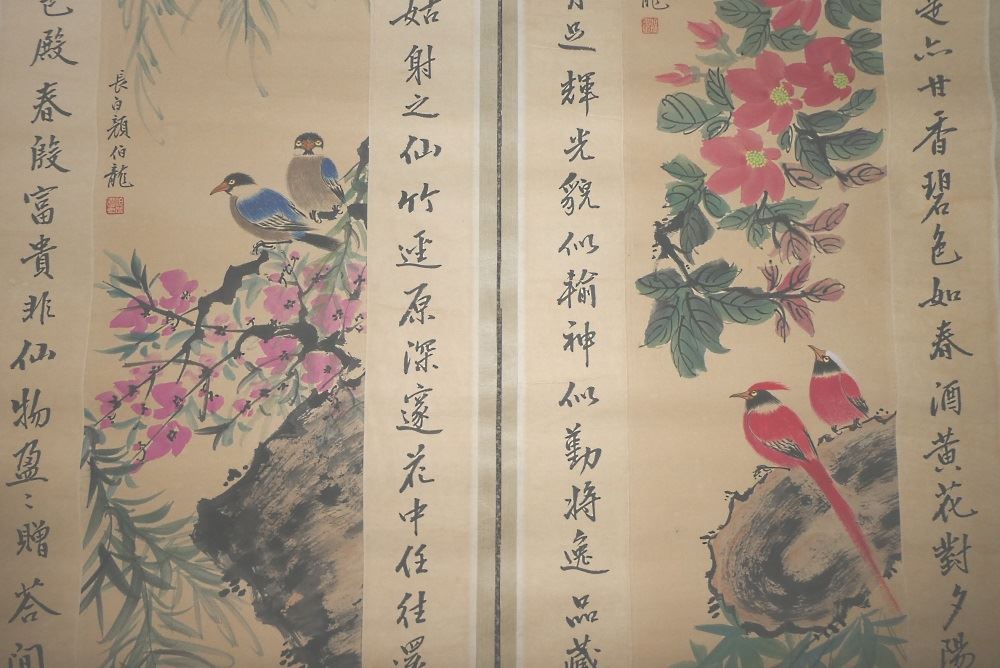 足亦廿香碧色如春酒黄花對夕陽
龍
足輝光貌似輸神似勤將逸品藏
姑射之仙竹逕原深邃花中任往還
長白顏伯龍
色殿春殷富貴非仙物盈〻贈荅間